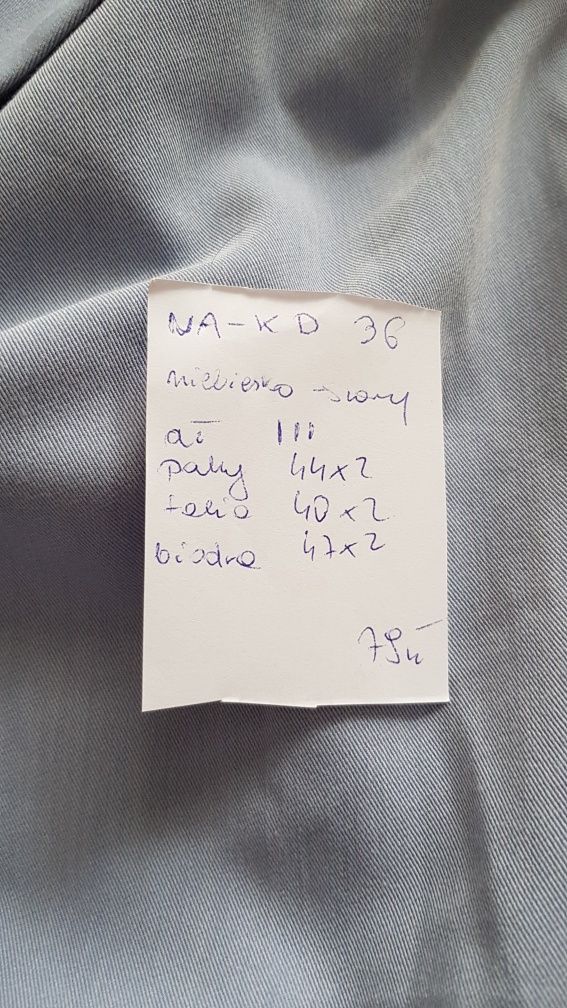 NA-KD 36
niebiesko-szary
dł 111
pachy 44x2
talia 40x2
biodra 47x2
79zł